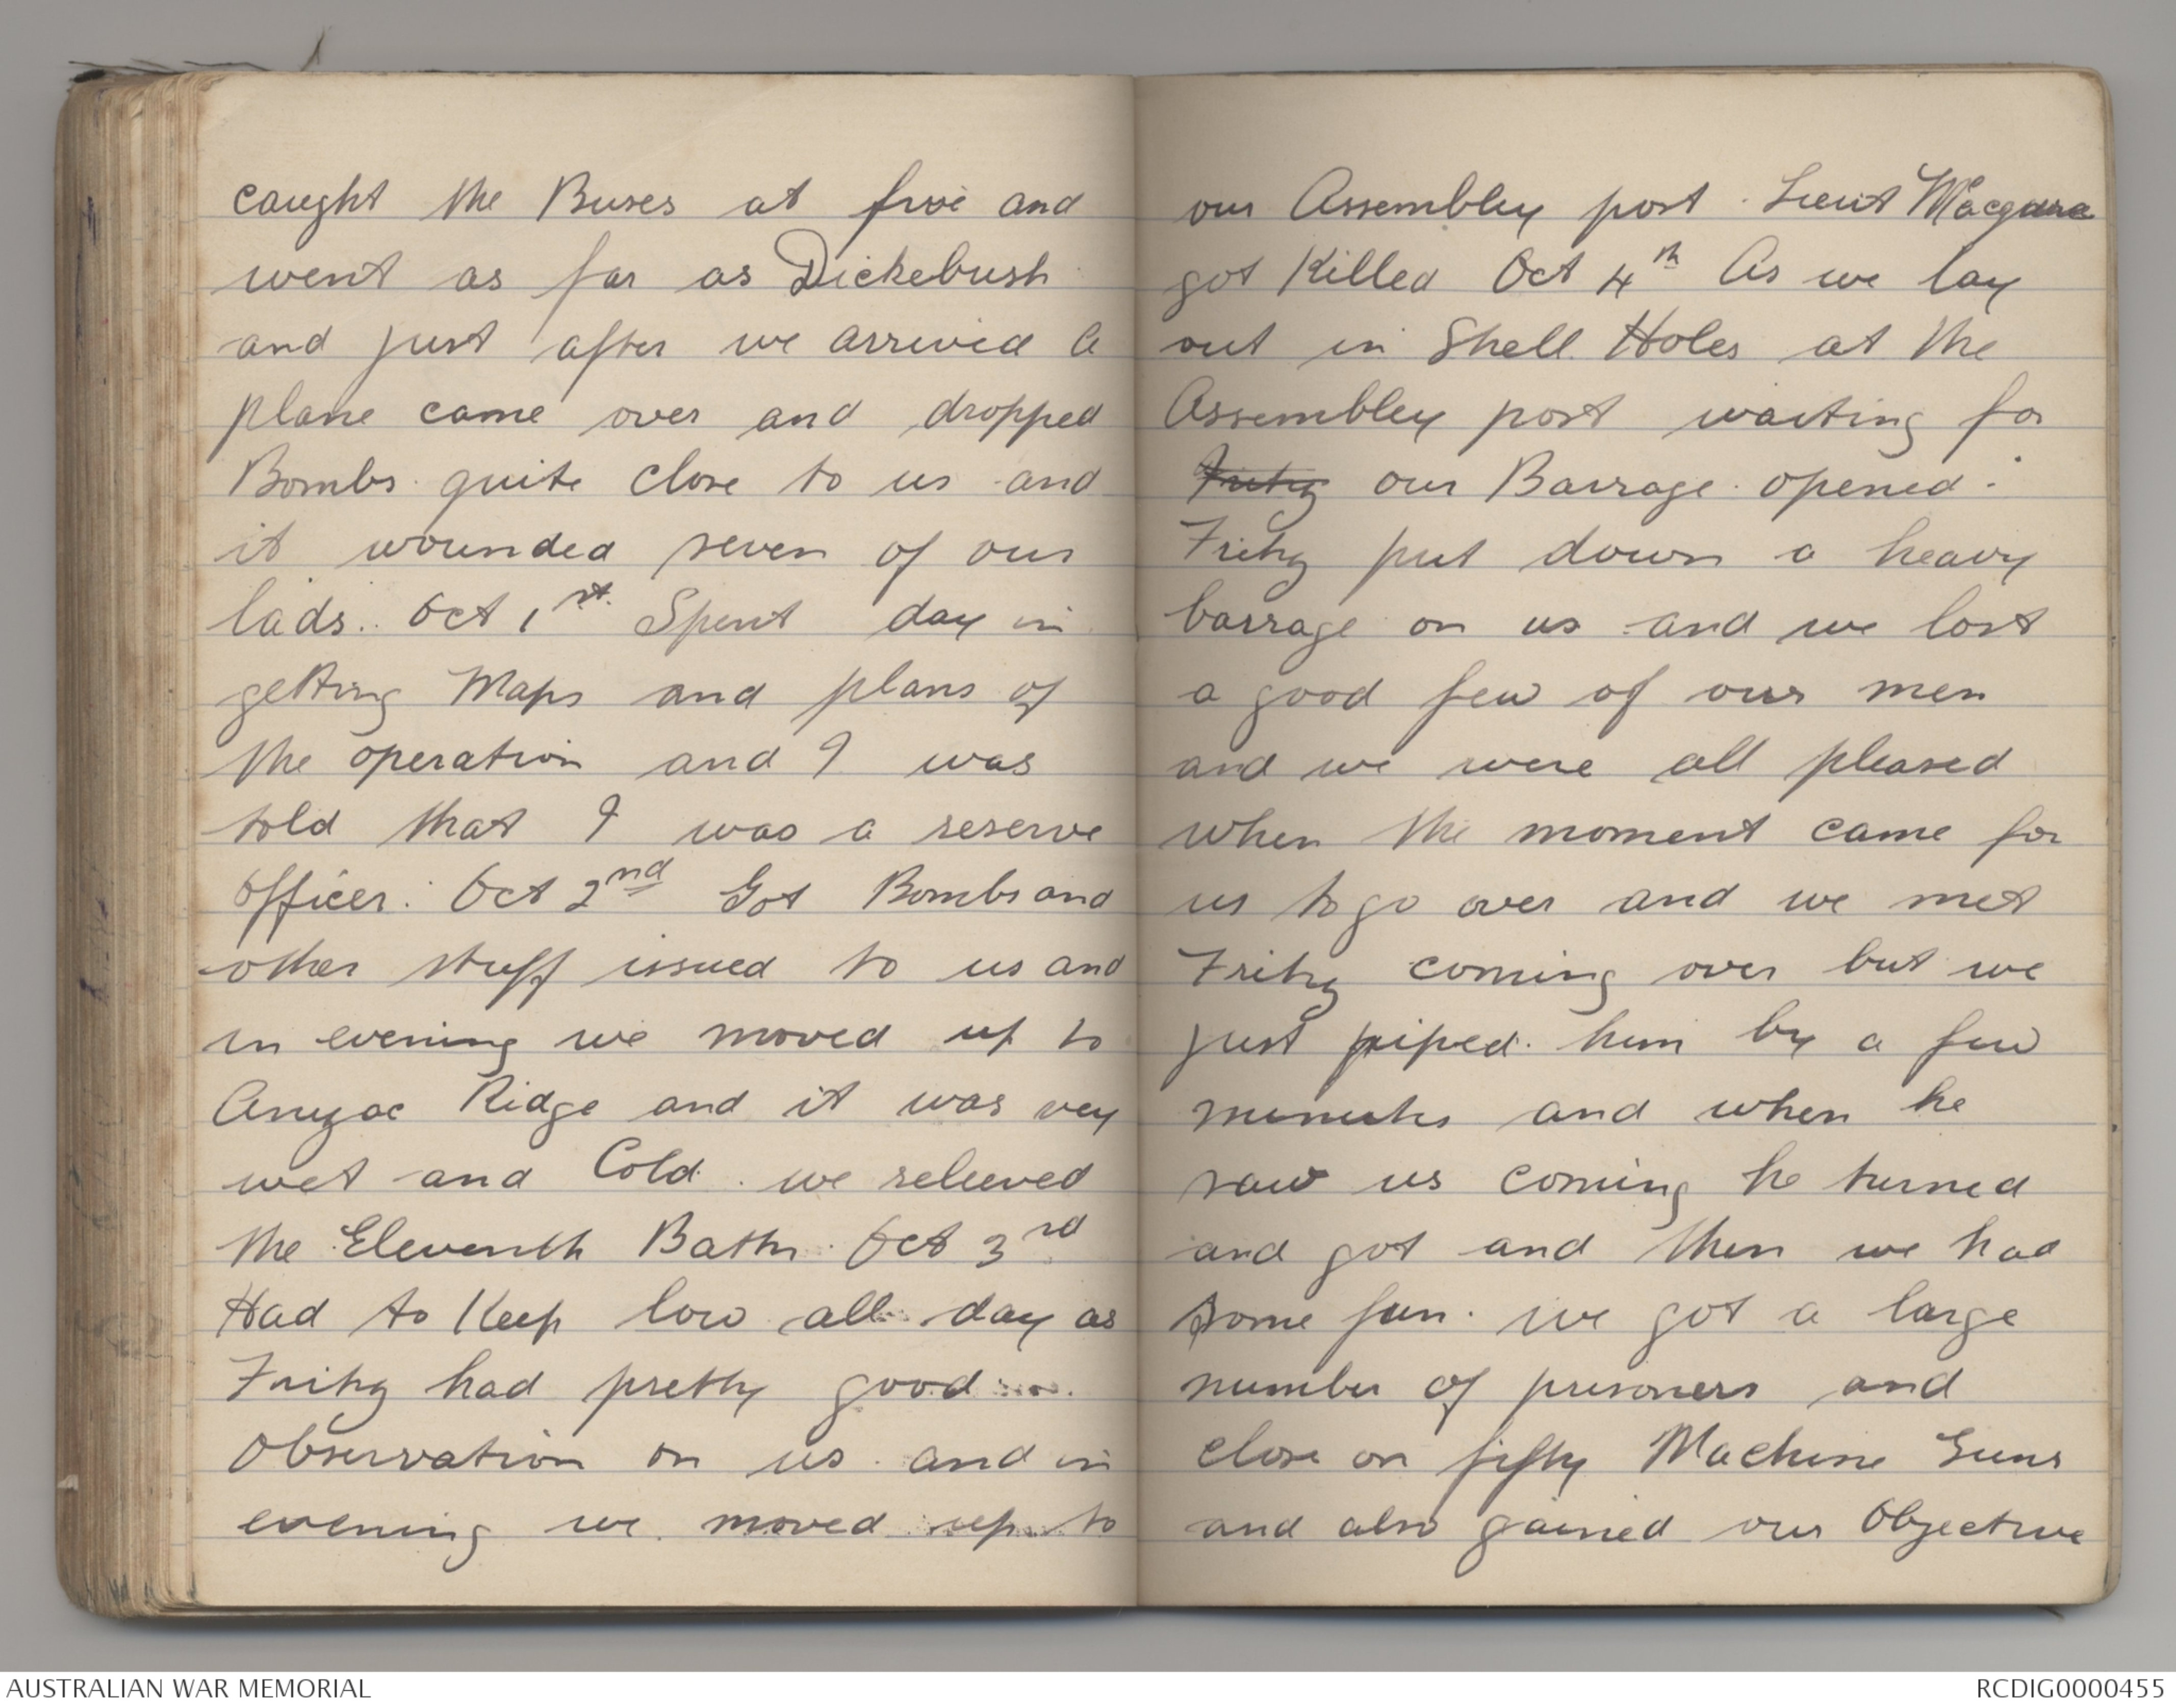 caught the Buses at five and
went as far as Dickebush
and just after we arrived a
plane came over and dropped
Bombs quite close to us and
it wounded seven of our
lads. Oct 1st. Spent day in
getting Maps and plans of
the operation and I was
told that I was a reserve
Officer. Oct 2nd Got Bombs and
other stuff issued to us and
in evening we moved up to
Anyzac Ridge and it was very
wet and Cold. we relieved
the Eleventh Battn. Oct 3rd
Had to Keep low all day as
Fritz had pretty good
Observation on us and in
evening we moved up to
our Assembley post. Lieut
got Killed Oct 4th As we lay
out in Shell Holes at the
Assembley post waiting for
Fritz our Barrage opened.
Fritz put down a heavy
barrage on us and we lost
a good few of our men
and we were all pleased
when the moment came for
us to go over and we met
Fritz coming over but we
just piped him by a few
minutes and when he
saw us coming he turned
and got and then we had
some fun. we got a large
number of prisoners and
close on fifty Machine Guns
and also gained our Objective
AUSTRALIAN WAR MEMORIAL
RCDIG0000455